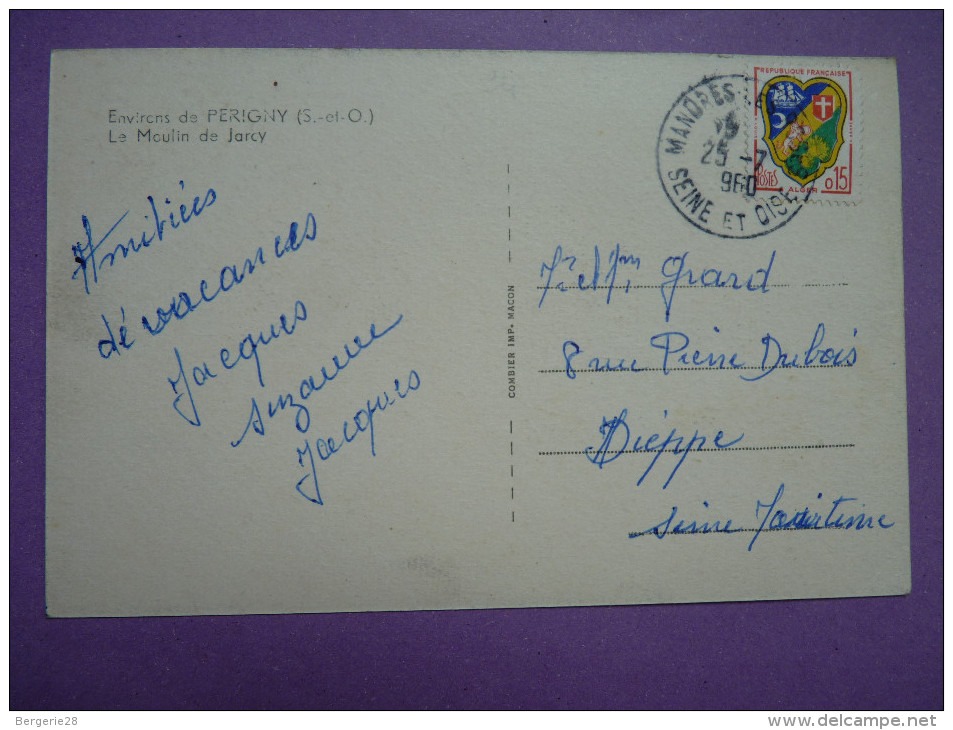 Environs de PERIGNY (S.-et-O.)
Le Moulin de Jarcy
Amitiés
de vacances
Jacques
Suzanne
Jacques
COMBIER IMP. MACON
REPUBLIQUE FRANÇAISE
POSTES
ALGER
0.15
MANDRES
25 -7
960
SEINE ET OISE
Grard
8 rue Pierre Dubois
Dièppe
Seine Maritime
Bergerie28
http://www.delcampe.net